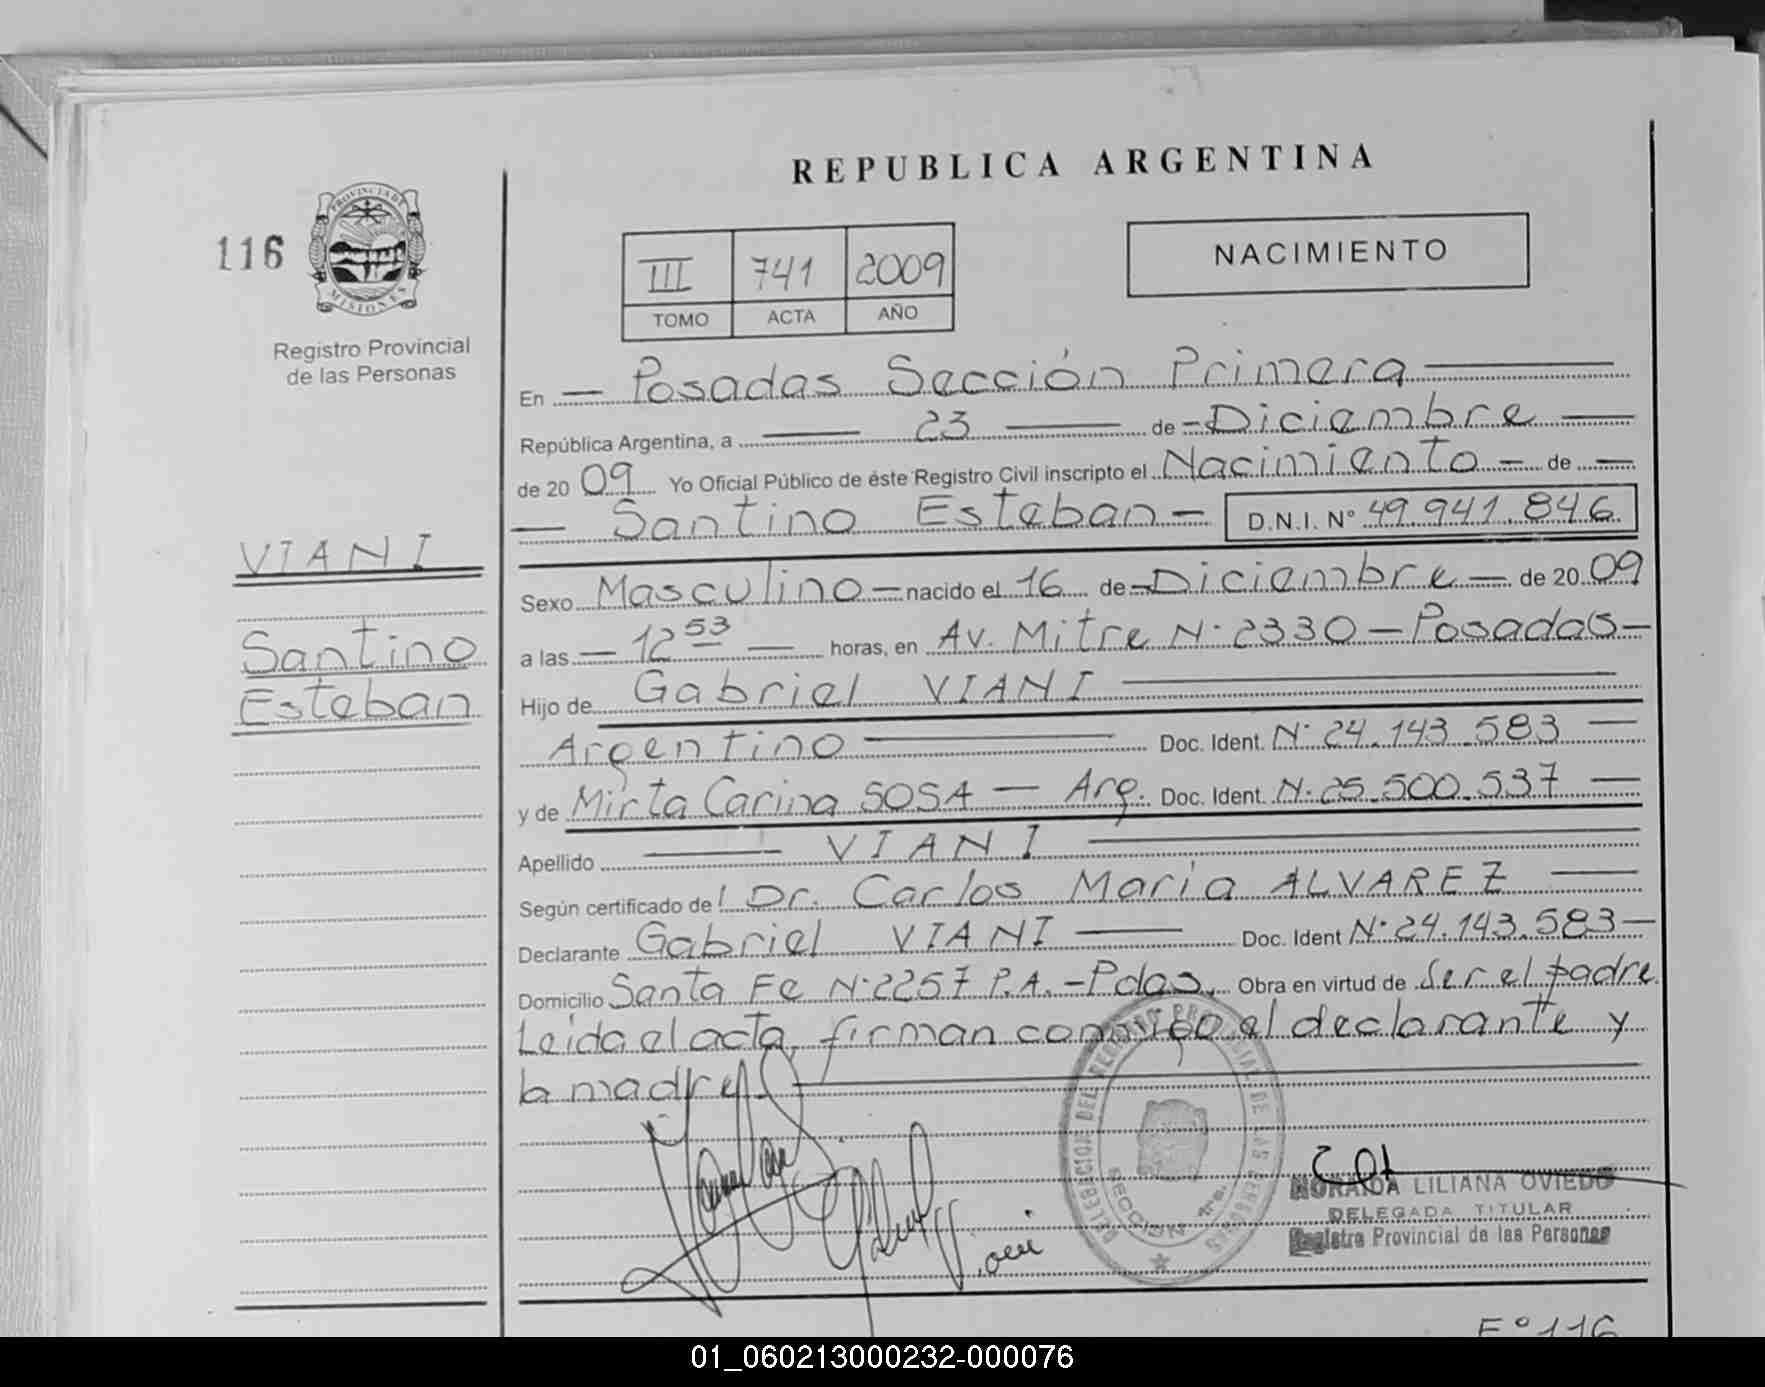 REPUBLICA ARGENTINA
116
PROVINCIA DE
MISIONES
Registro Provincial
de las Personas
III 741 2009
TOMO ACTA AÑO
NACIMIENTO
En — Posadas Sección Primera —
República Argentina, a — 23 — de — Diciembre —
de 20 09 Yo Oficial Público de éste Registro Civil inscripto el Nacimiento — de —
— Santino Esteban — D.N.I. N° 49.941.846
VIANI
Santino
Esteban
Sexo Masculino — nacido el 16 de — Diciembre — de 20 09
a las — 12 53 — horas, en Av. Mitre N° 2330 — Posadas —
Hijo de Gabriel VIANI —
Argentino — Doc. Ident. N° 24.143.583 —
y de Mirta Carina SOSA — Arg. Doc. Ident. N° 25.500.537 —
Apellido — VIANI —
Según certificado del Dr. Carlos Maria ALVAREZ —
Declarante Gabriel VIANI — Doc. Ident N° 24.143.583 —
Domicilio Santa Fe N° 2257 P.A. - Pdas. Obra en virtud de Ser el padre.
Leida el acta, firman conmigo el declarante y
la madre. —
SECCION 1ra.
NORAIDA LILIANA OVIEDO
DELEGADA TITULAR
Registro Provincial de las Personas
F° 116
01_060213000232-000076